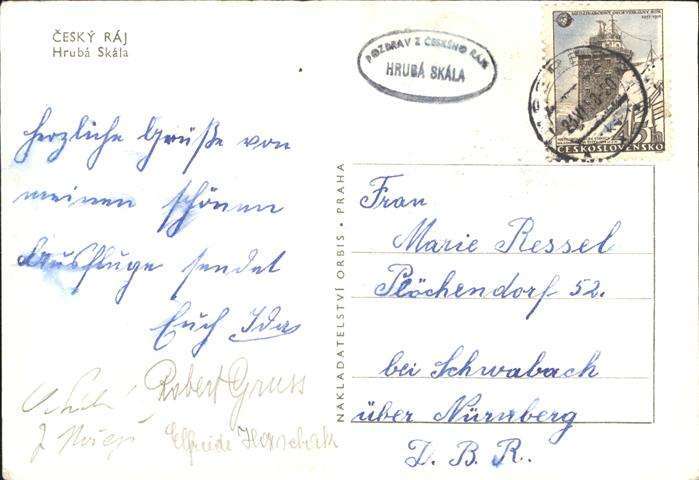 ČESKÝ RÁJ
Hrubá Skála
POZDRAV Z ČESKÉHO RÁJE
HRUBÁ SKÁLA
15h
ČESKOSLOVENSKO
herzliche Grüße von
meinen schönen
Ausfluge sendet
Euch Ida
Robert Gruss
Elfriede
NAKLADATELSTVÍ ORBIS • PRAHA
Frau
Marie Ressel
Plöchendorf 52.
bei Schwabach
über Nürnberg
D. B. R.